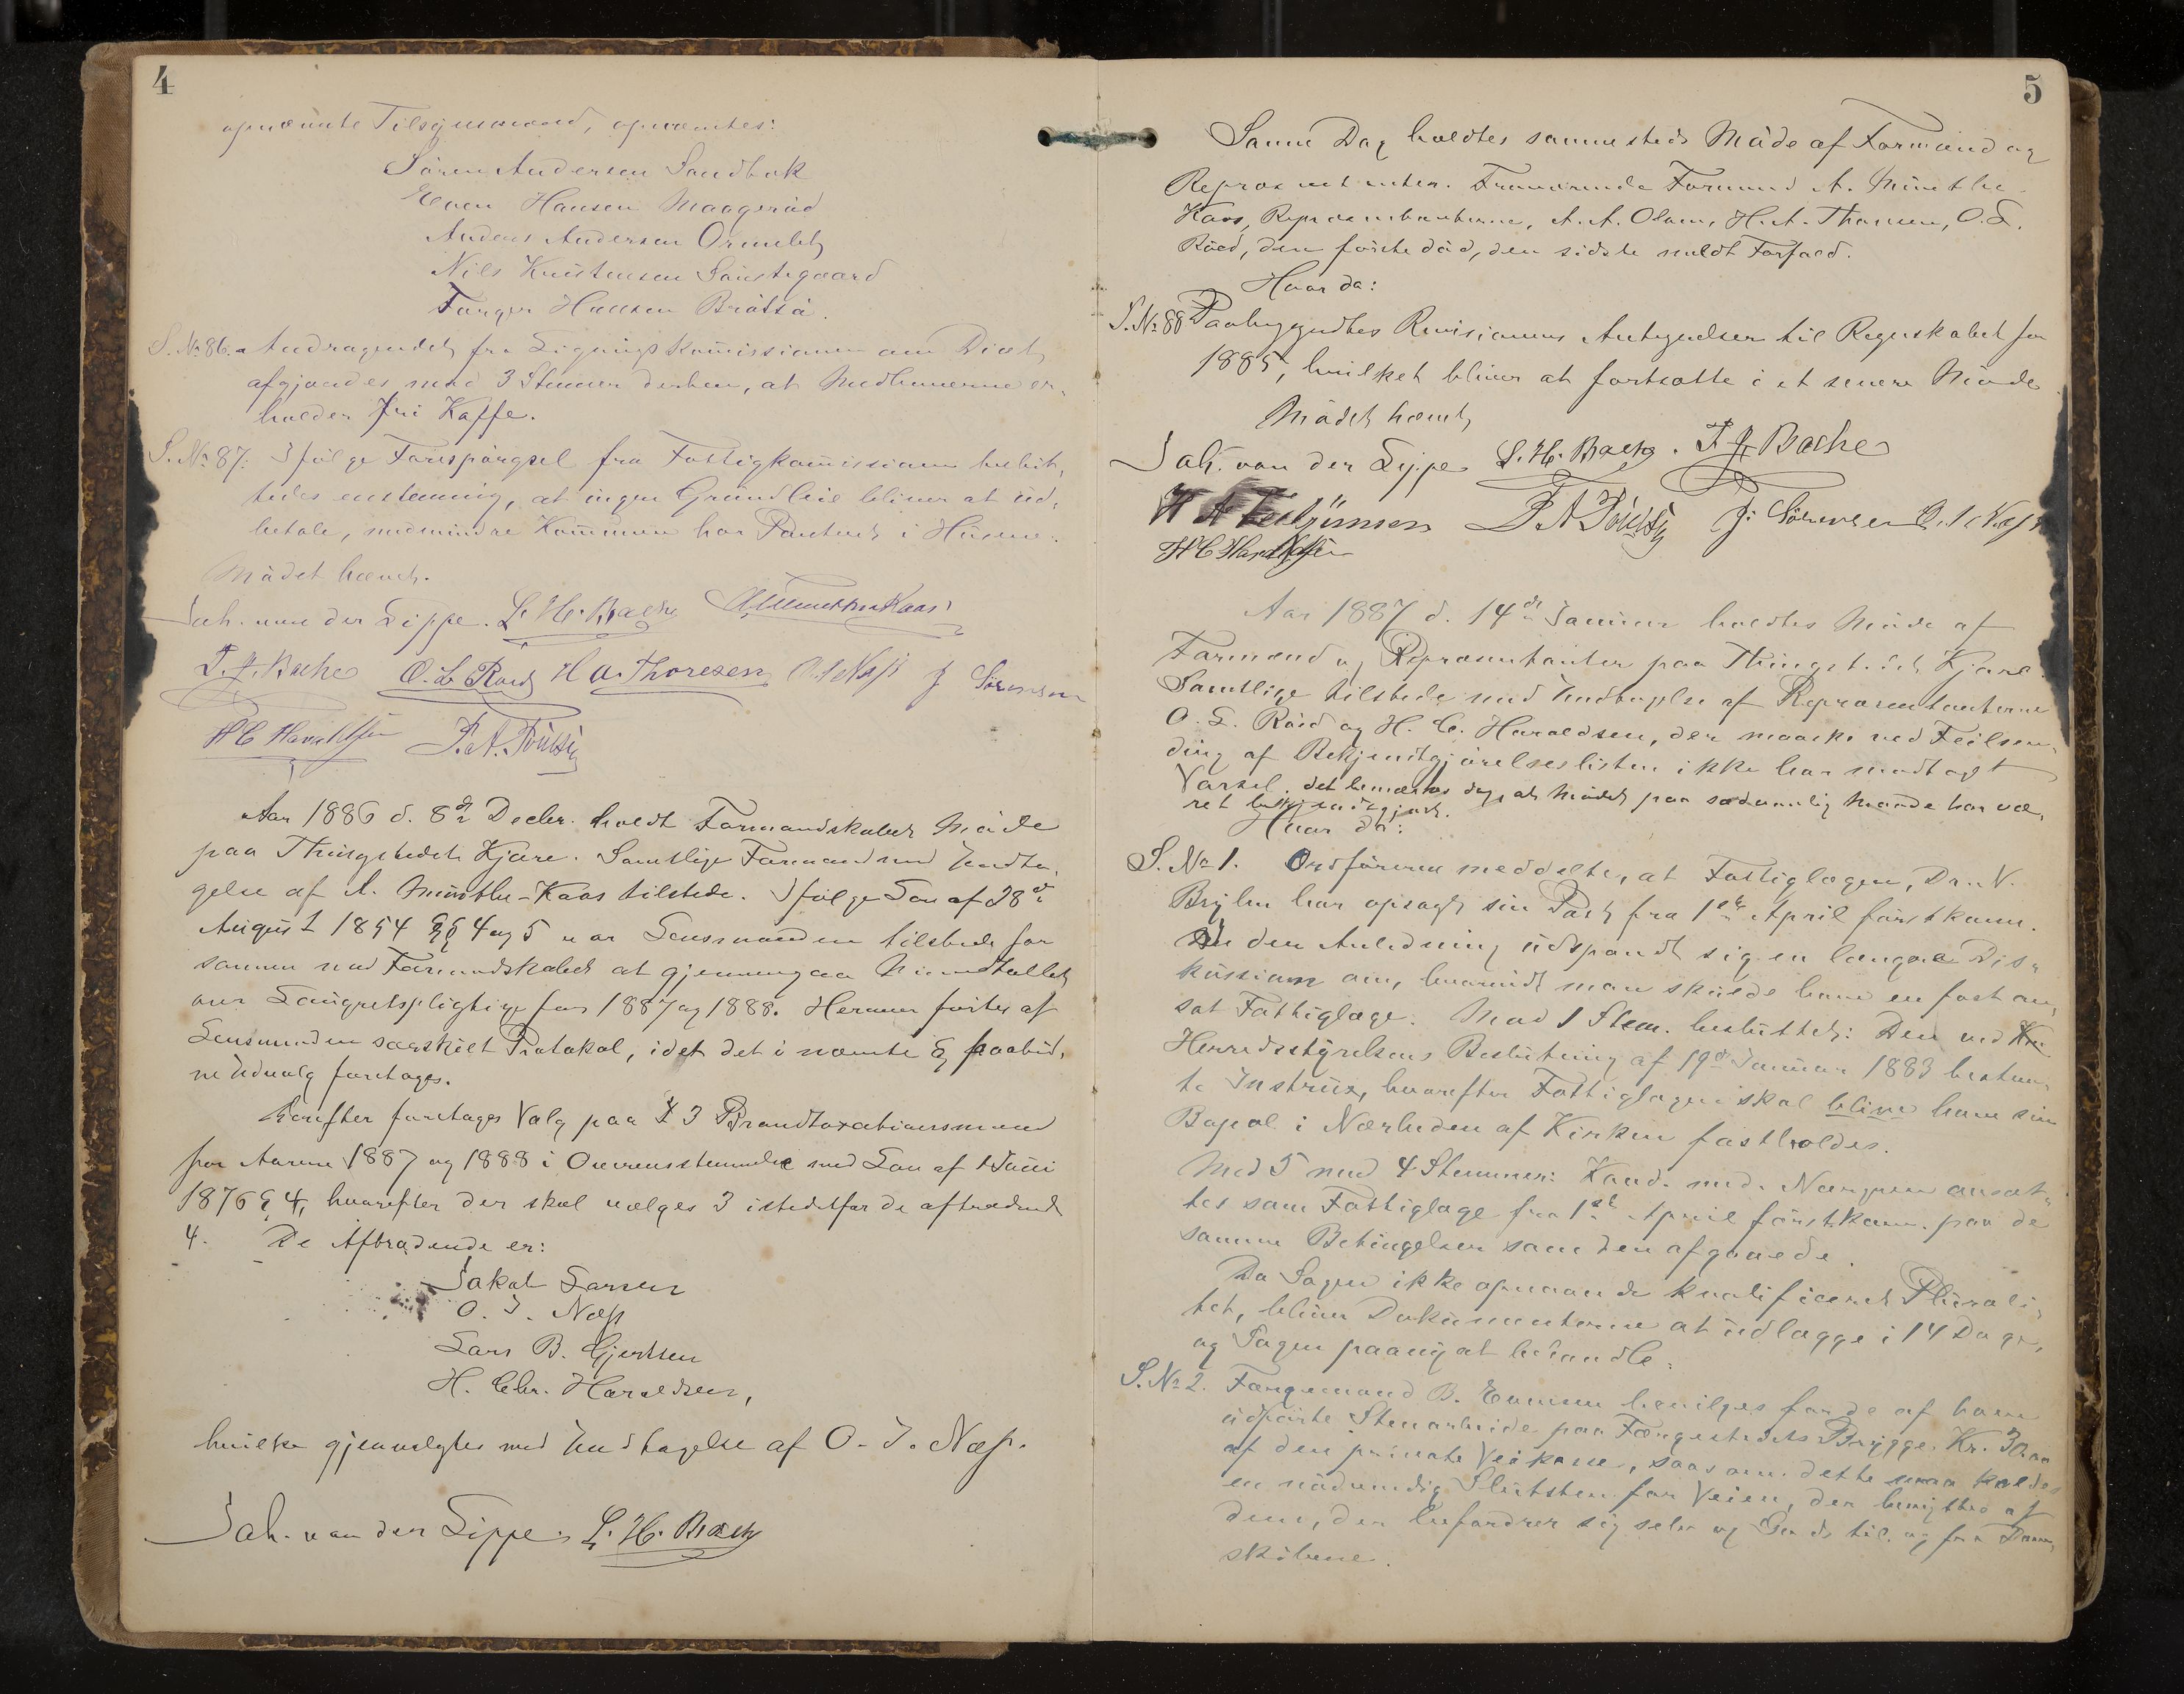 4
opnævnte Tilsynsmænd, opnævntes:
Søren Andersen Sandbæk
Even Hansen Maageröd
Anders Andersen Ormelet
Nils Kristensen Sönstegaard
Hansen Bråtså.
S. No 86. Andragendet fra Ligningskommissionen om Diæt,
afgjordes med 3 Stemmer derhen, at Medlemmerne er-
holder fri Kaffe.
S. No 87: Ifølge Forespørgsel fra Fattigkommissionen beslut-
tedes enstemmig, at ingen Grundleie bliver at ud-
betale, medmindre Kommunen har Panteret i Husene.
Mødet hævet.
Joh. van der Lippe. L. H. Bache A Munthe Kaas
T. J. Bache O. L. Röed H A. Thoresen O. I. Næss J Sörensen
H C Haraldsen
Aar 1886 d. 8de Decbr. holdt Formandskabet Møde
paa Thingstedet Kjære. Samtlige Formænd med Undta-
gelse af A. Munthe-Kaas tilstede. Ifølge Lov af 28de
August 1854 §§ 4 og 5 var Lensmanden tilstede for
sammen med Formandskabet at gjennemgaa Mandtallet
over Laugretspligtige for 1887 og 1888. Herover førtes af
Lensmanden særskilt Protokol, idet det i nævnte § paabud-
ne Udvalg foretages.
Derefter foretages Valg paa 3 Brandtaxationsmænd
for Aarene 1887 og 1888 i Overensstemmelse med Lov af 1 Juni
1876 § 4, hvorefter der skal vælges 3 istedetfor de aftrædende
4. De Aftrædende er:
Jakob Larsen
O. I. Næss
Lars B. Gjertsen
H. Chr. Haraldsen,
hvilke gjenvalgtes med Undtagelse af O. I. Næss.
Joh. van der Lippe. L. H. Bache
5
Samme Dag holdtes sammesteds Møde af Formænd og
Repræsentanter. Fraværende Formand A. Munthe-
Kaas, Repræsentanterne, A. A. Olsen, H. A. Thoresen, O. L.
Röed, den første død, den sidste meldt Forfald.
Hvor da:
S. No 88 Paabegyndtes Revisionens Antegnelser til Regnskabet for
1885, hvilket bliver at fortsætte i et senere Møde
Mødet hævet,
Joh. van der Lippe L. H. Bache. T. J. Bache
J. Sörensen O. I. Næss
H C Haraldsen
Aar 1887 d. 14de Januar holdtes Møde af
Formænd og Repræsentanter paa Thingstedet Kjære.
Samtlige tilstede med Undtagelse af Repræsentanterne
O. L. Röed og H. C. Haraldsen, der maaske ved Feilsen-
ding af Bekjendtgjørelseslisten ikke har modtaget
Varsel. det bemærkes dog, at Mødet paa sædvanlig Maade har væ-
ret bekjendtgjort.
Hvor da:
S. No 1. Ordføreren meddelte, at Fattiglægen, Dr. N.
Bryhn har opsagt sin Post fra 1ste April førstkomm.
I den Anledning udspandt sig en længere Dis-
kussion om, hvorvidt man skulde have en fast an-
sat Fattiglæge. Mod 1 Stem. besluttet: Den ved
Herredsstyrelsens Beslutning af 19de Januar 1883 bestem-
te Instrux, hvorefter Fattiglægen skal blive have sin
Bopæl i Nærheden af Kirken fastholdes.
Med 5 mod 4 Stemmer: Kand. med. ansæt-
tes som Fattiglæge fra 1ste April førstkomm. paa de
samme Betingelser som den afgaaede.
Da Sagen ikke opnaaede kvalificeret Plurali-
tet, bliver Dokumenterne at udlægge i 14 Dage,
og Sagen paany at behandle.
S. No 2. Færgemand B. Evensen bevilges for de af ham
udførte Stenarbeide paa Færgestedets Brygge, Kr.
af den private Veikasse, saasom dette maa kaldes
en nødvendig Slutsten for Veien, der benyttes af
dem, der befordrer sig selv og Gods til og fra Damp-
skibene.